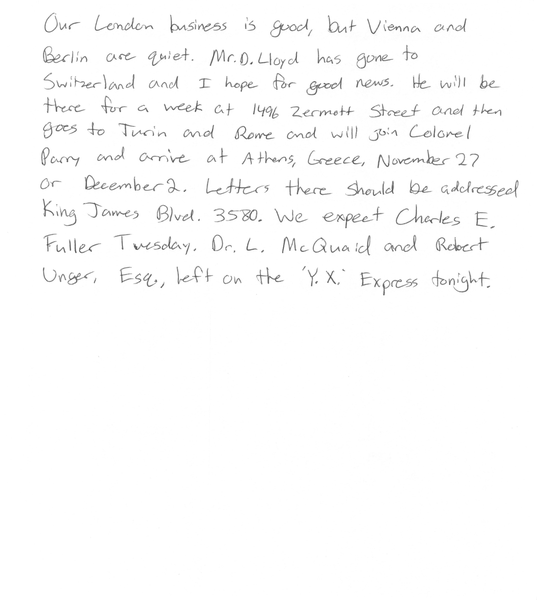 Our London business is good, but Vienna and
Berlin are quiet. Mr. D. Lloyd has gone to
Switzerland and I hope for good news. He will be
there for a week at 1496 Zermott Street and then
goes to Turin and Rome and will join Colonel
Parry and arrive at Athens, Greece, November 27
or December 2. Letters there should be addressed
King James Blvd. 3580. We expect Charles E.
Fuller Tuesday. Dr. L. McQuaid and Robert
Unger, Esq., left on the 'Y. X.' Express tonight.